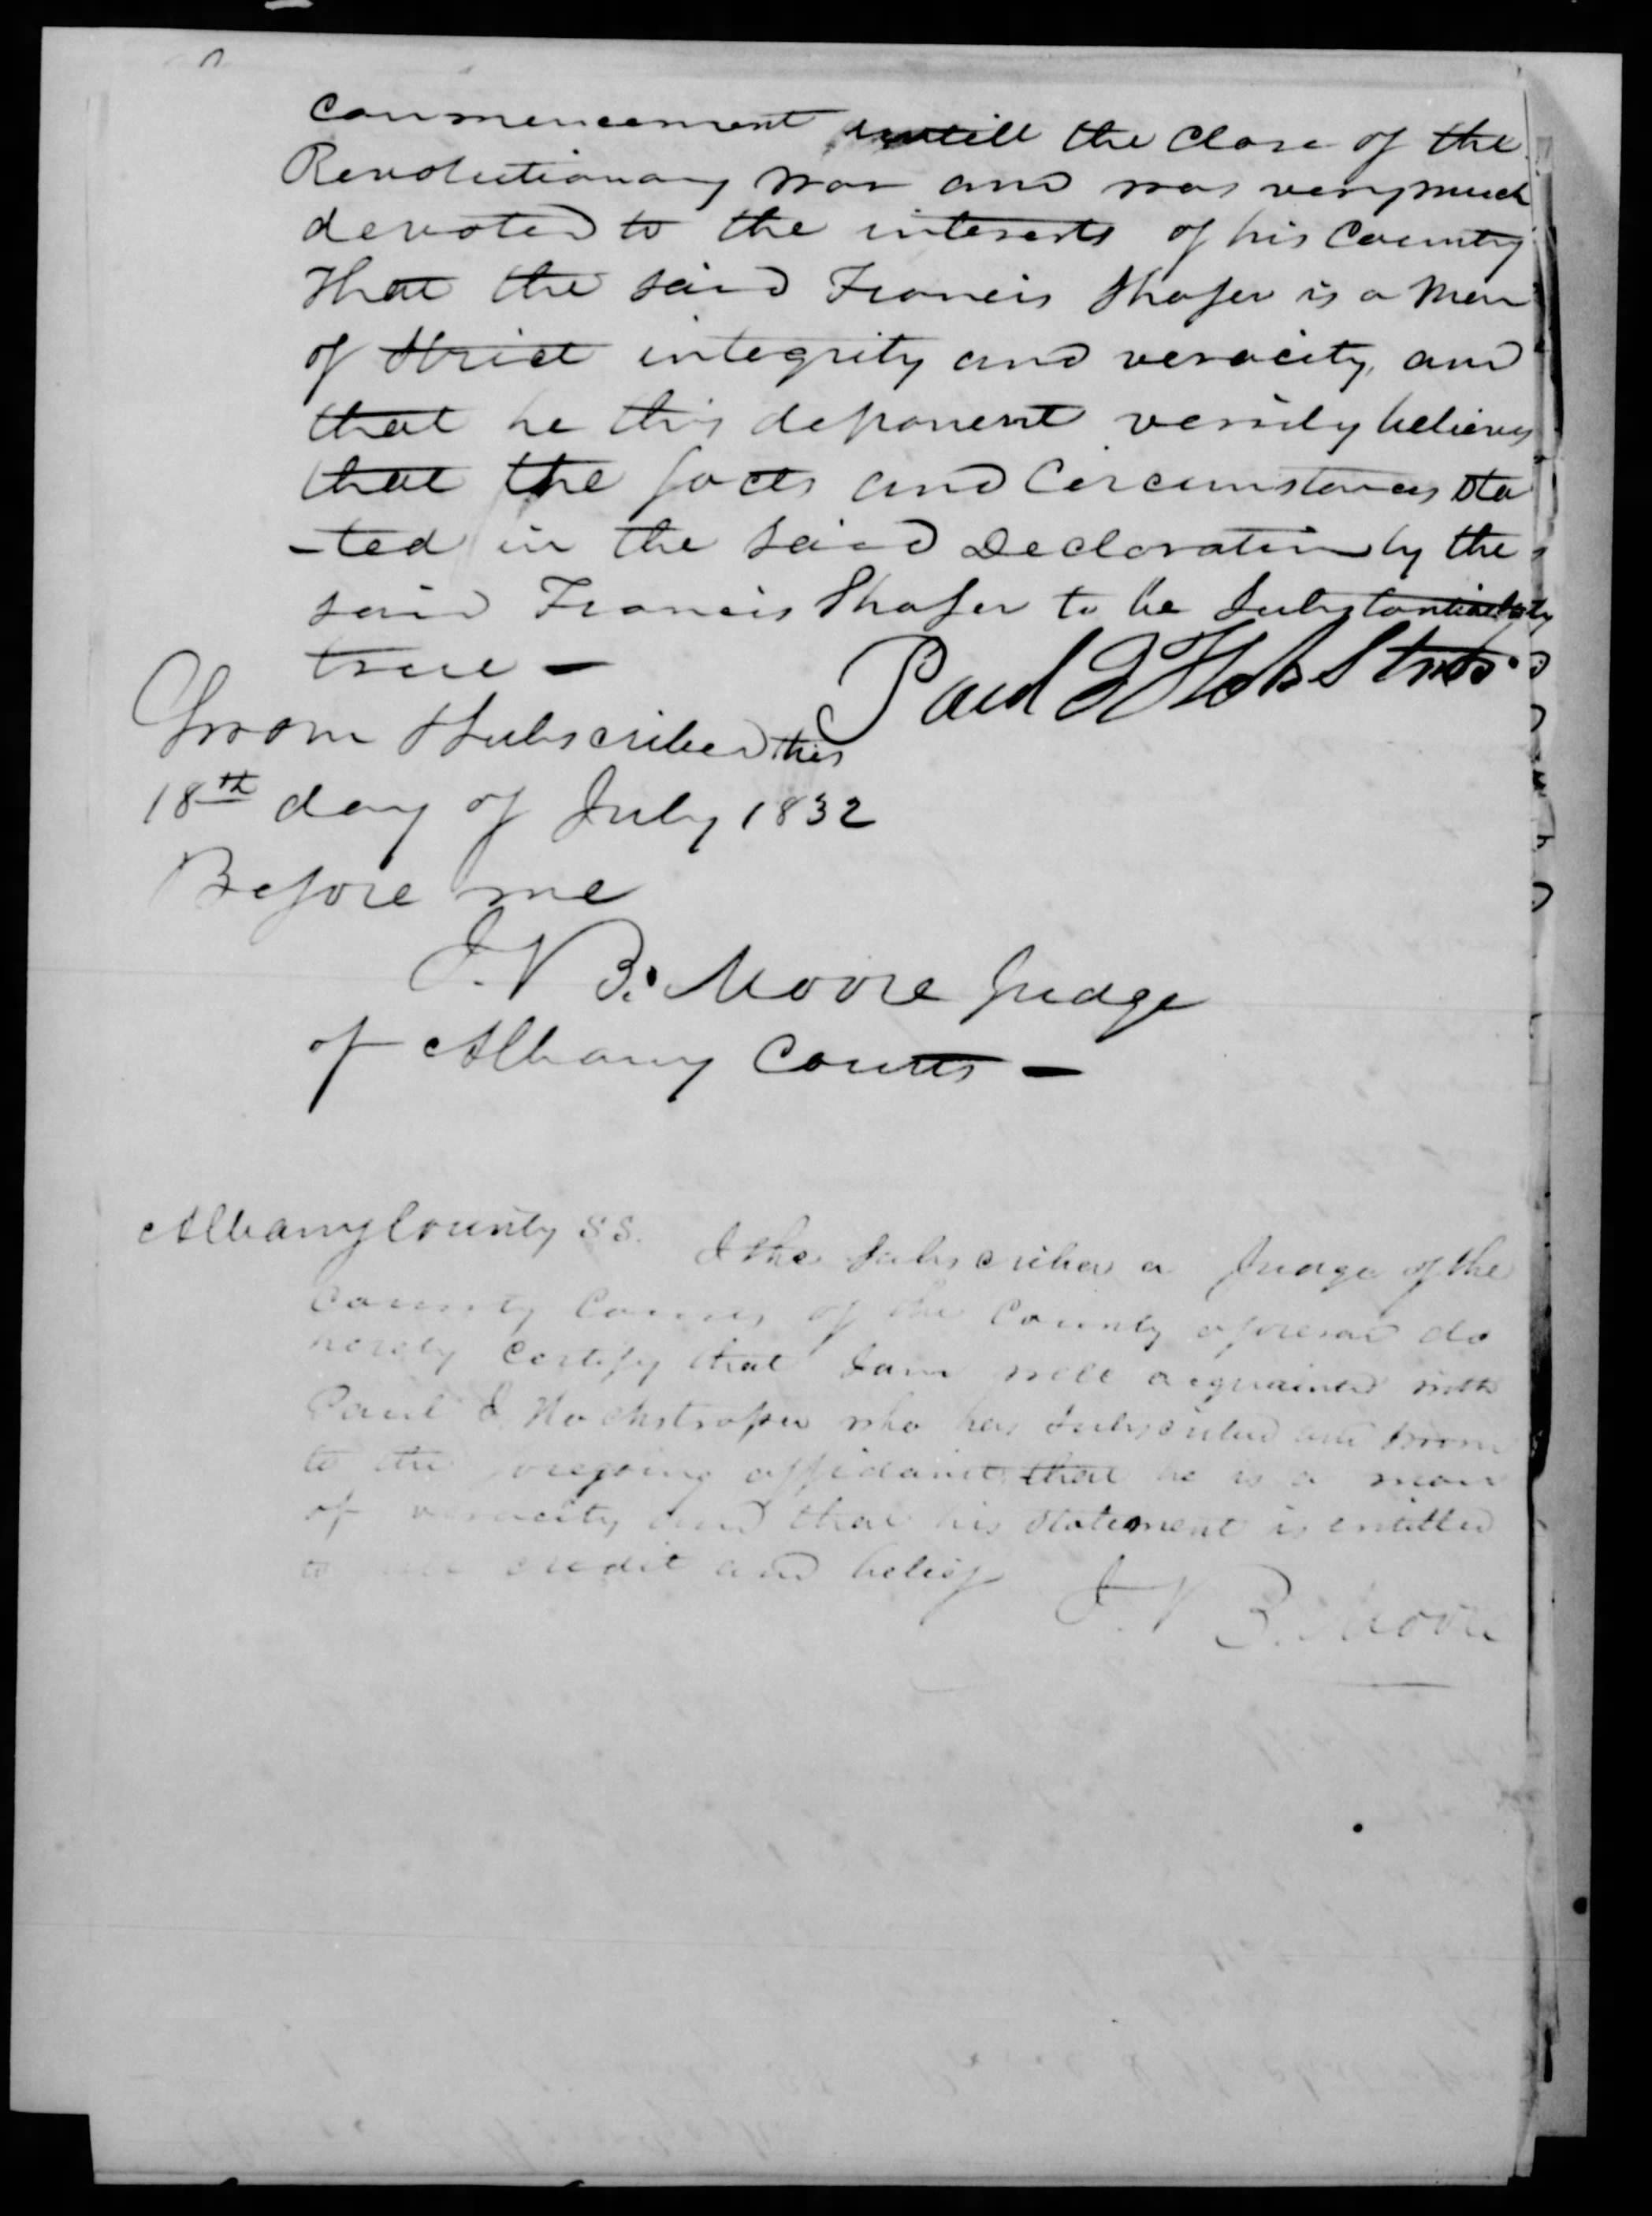 Commencement untill the Close of the
Revolutionary war and was very much
devoted to the interests of his Country
That the said Francis Shafer is a Man
of Strict integrity and veracity, and
that he this deponent verily believes
that the facts and Circumstances sta
-ted in the said Declaration by the
said Francis Shafer to be Substantially
true -
Paul I
Sworn & Subscribed this
18th day of July 1832
Before me
J. V B. Moore Judge
of Albany Counts -
Albany County SS. I the Subscriber a Judge of the
County Courts of the County aforesaid do
hereby Certify that I am well acquainted with
Paul I. Hochstrasser who has Subscribed and Sworn
to the foregoing affidavit that he is a man
of veracity and that his Statement is entitled
to credit and belief
J. V B. Moore